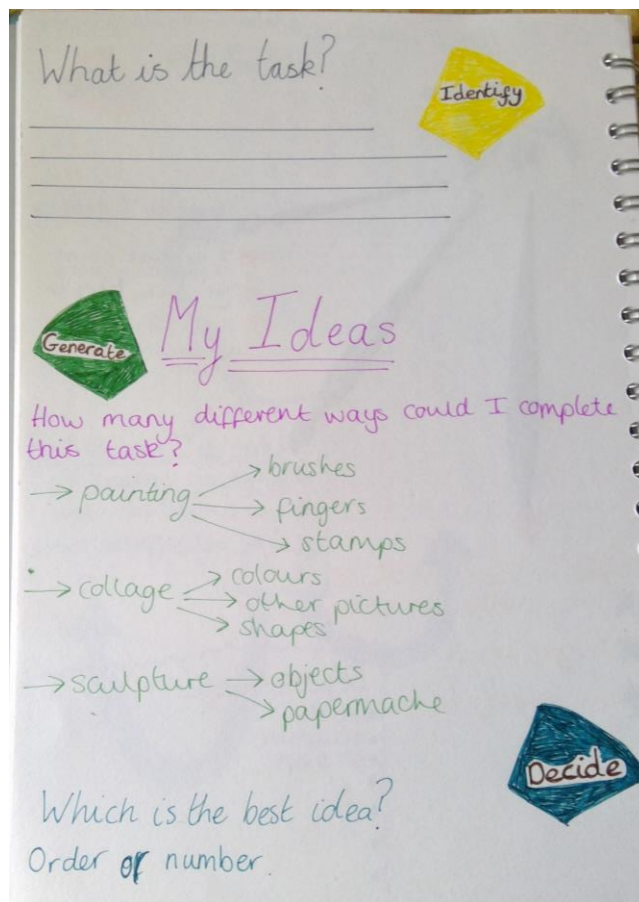 What is the task?
Identify
Generate
My Ideas
How many different ways could I complete
this task?
→ painting → brushes
→ fingers
→ stamps
→ collage → colours
→ other pictures
→ shapes
→ sculpture → objects
→ papermache
Decide
Which is the best idea?
Order or number.